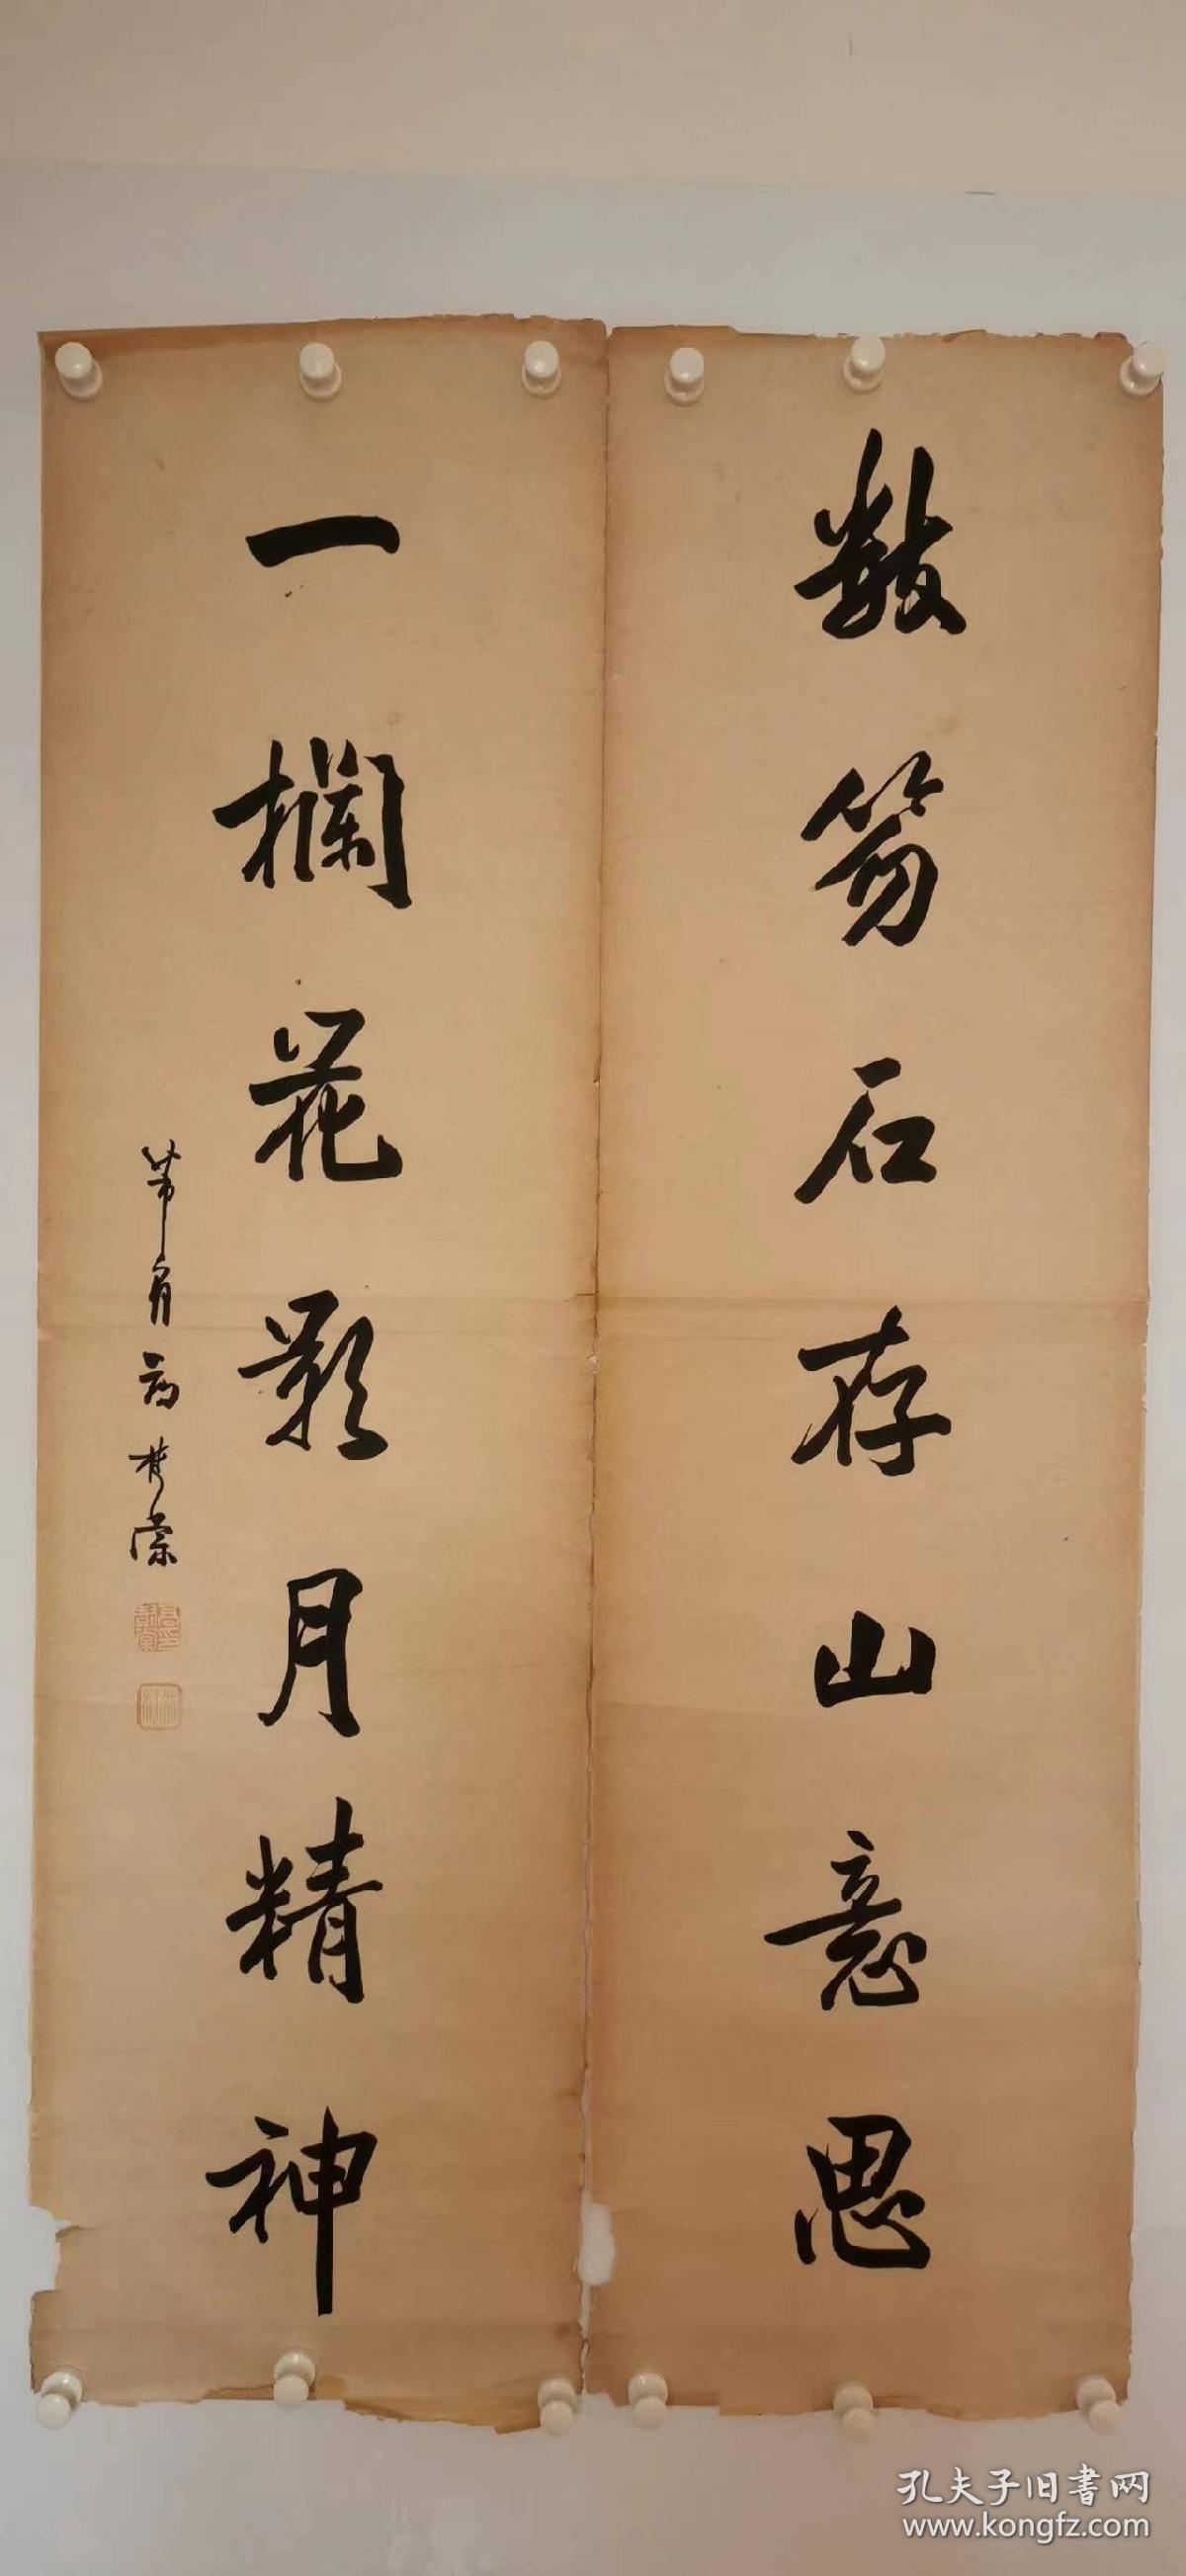 数笏石存山意思
一欄花影月精神
孔夫子旧書网
www.kongfz.com